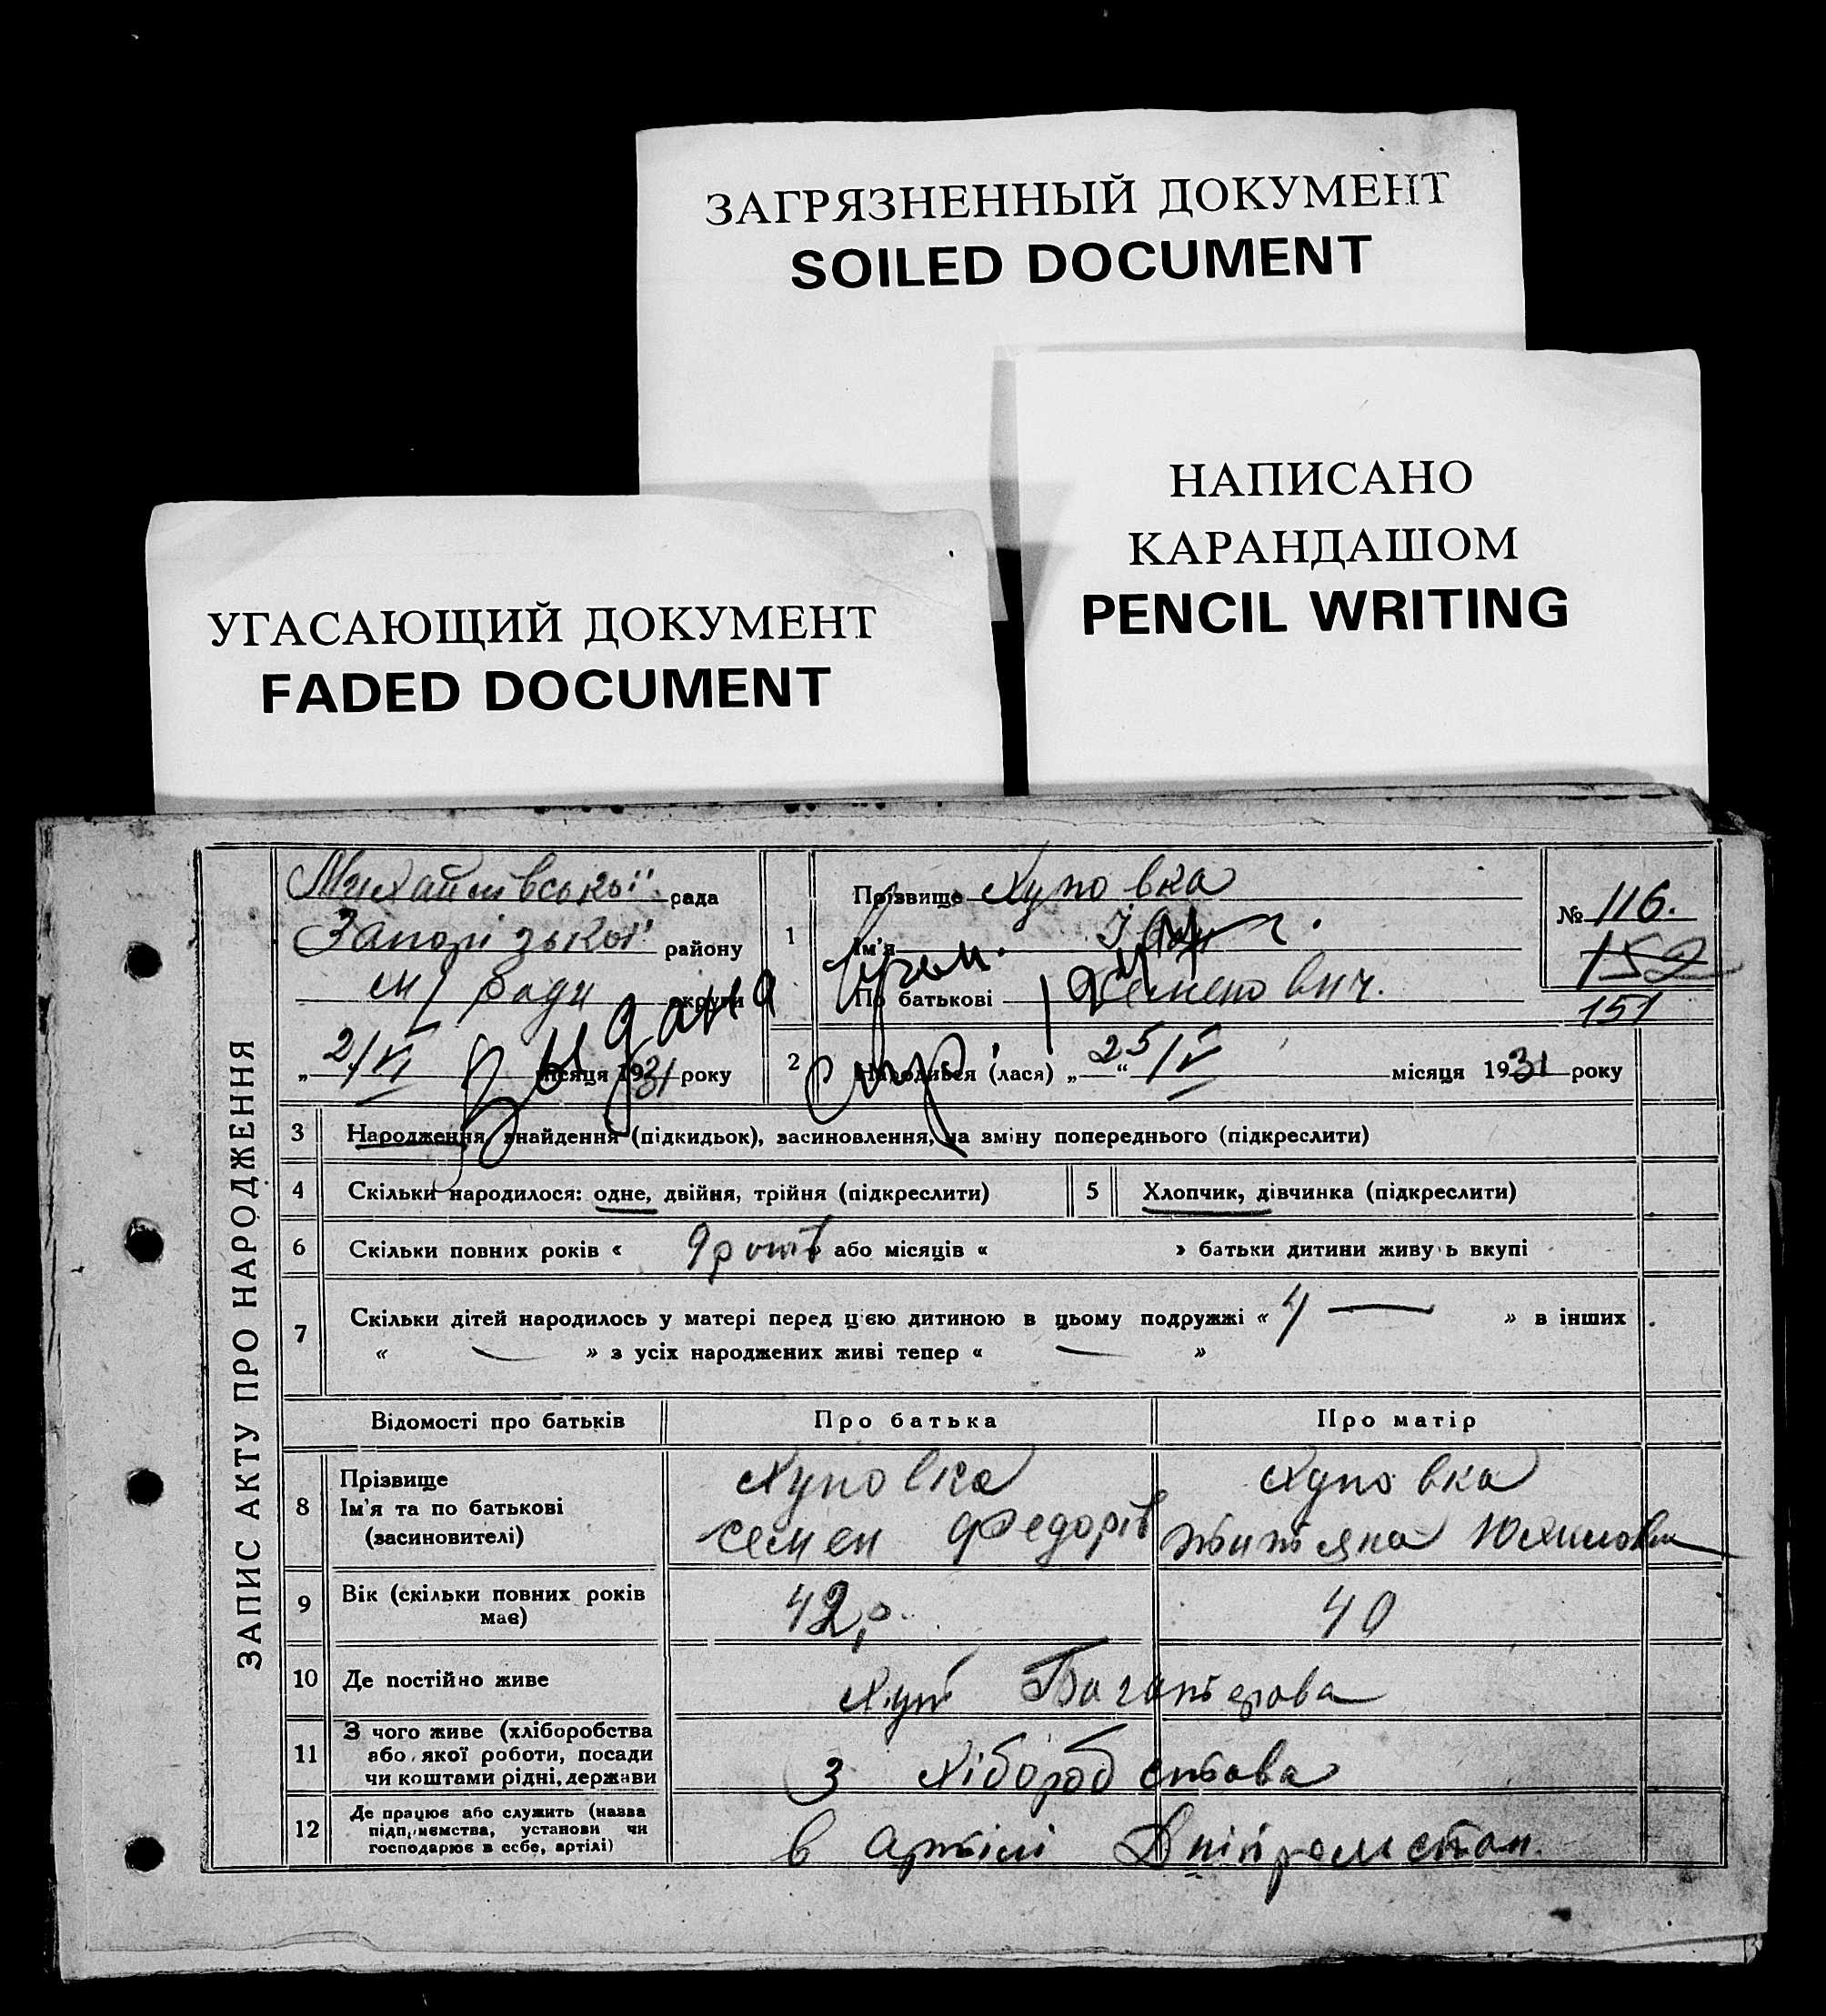 ЗАГРЯЗНЕННЫЙ ДОКУМЕНТ
SOILED DOCUMENT
НАПИСАНО
КАРАНДАШОМ
PENCIL WRITING
УГАСАЮЩИЙ ДОКУМЕНТ
FADED DOCUMENT
ЗАПИС АКТУ ПРО НАРОДЖЕННЯ
Михайлівської рада
Запорізької району
м/ ради округи
„ 2/VI місяця 1931 року
видана
1
Прізвище Хуповка
Ім'я Іван
По батькові Семенович.
№ 116.
152
151
2 Народився (лася) „ 25 “ /V місяця 1931 року
3 Народження, знайдення (підкидьок), засиновлення, на зміну попереднього (підкреслити)
4 Скільки народилося: одне, двійня, трійня (підкреслити)
5 Хлопчик, дівчинка (підкреслити)
6 Скільки повних років « 9 років » або місяців « » батьки дитини живуть вкупі
7 Скільки дітей народилось у матері перед цією дитиною в цьому подружжі « 4 — » в інших
« — » з усіх народжених живі тепер « — »
Відомості про батьків Про батька Про матір
8 Прізвище Хуповка Хуповка
Ім'я та по батькові Семен Федорів
(засиновителі)
9 Вік (скільки повних років 42 р. 40
має)
10 Де постійно живе Хут
11 З чого живе (хліборобства
або якої роботи, посади З хіборобства
чи коштами рідні, держави
12 Де працює або служить (назва
підприємства, установи чи в артілі
господарює в себе, артілі)